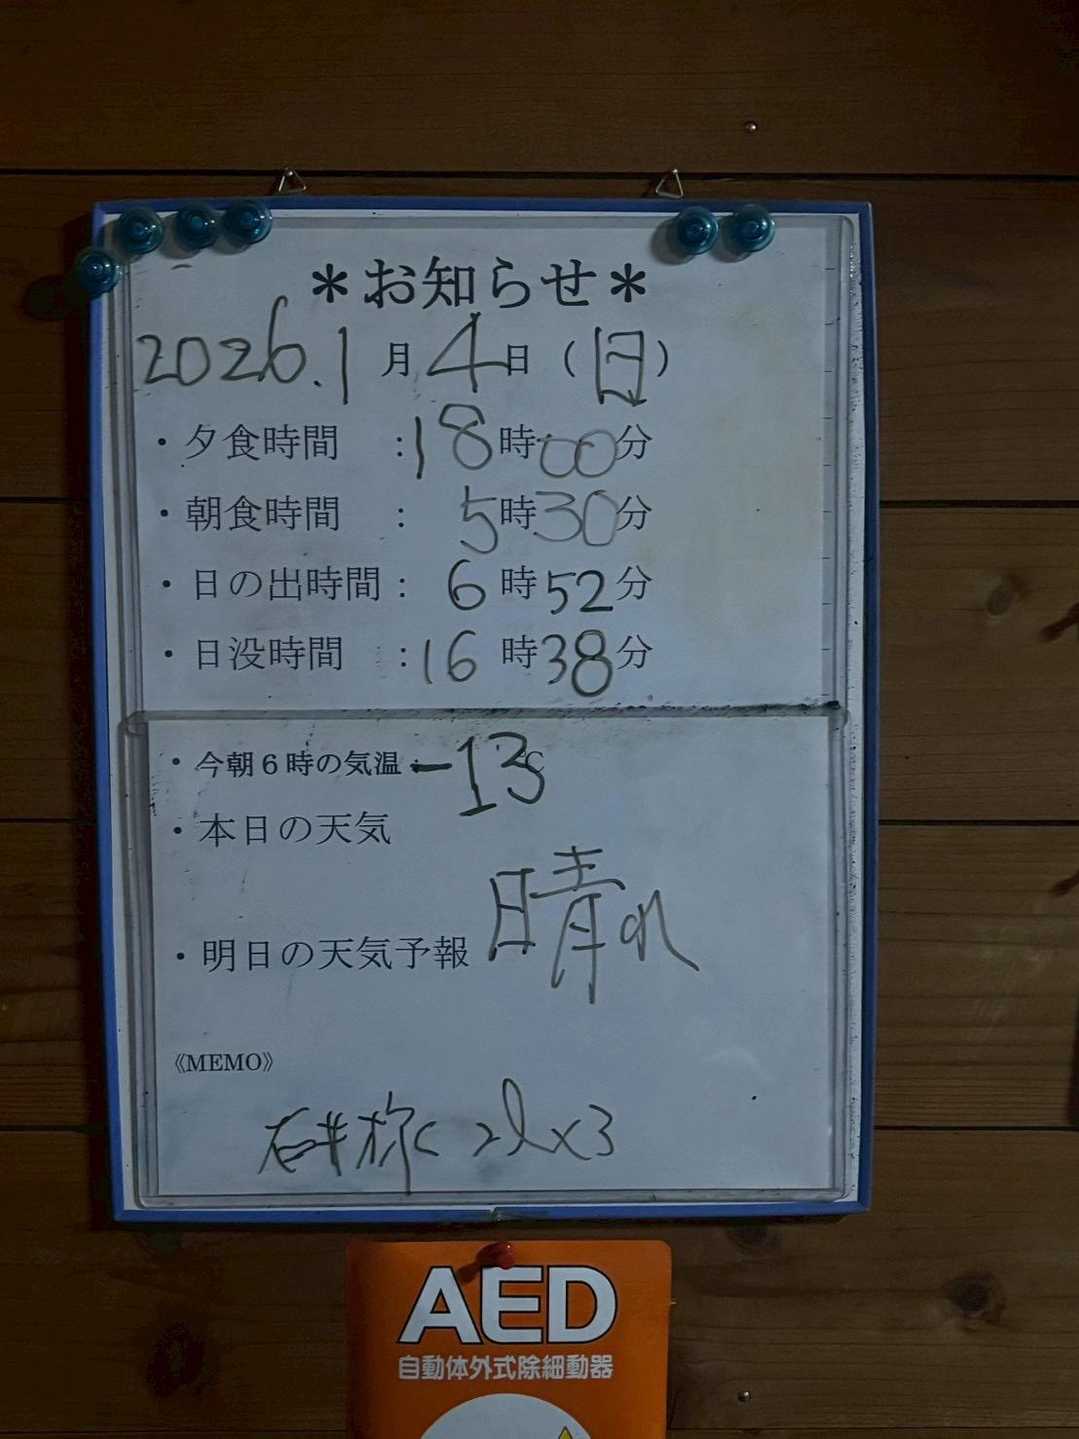 ＊お知らせ＊
2026.1月4日（日）
・夕食時間　:18時00分
・朝食時間　:5時30分
・日の出時間:6時52分
・日没時間　:16時38分
・今朝６時の気温:-13℃
・本日の天気
晴れ
・明日の天気予報
《MEMO》
2l×3
AED
自動体外式除細動器